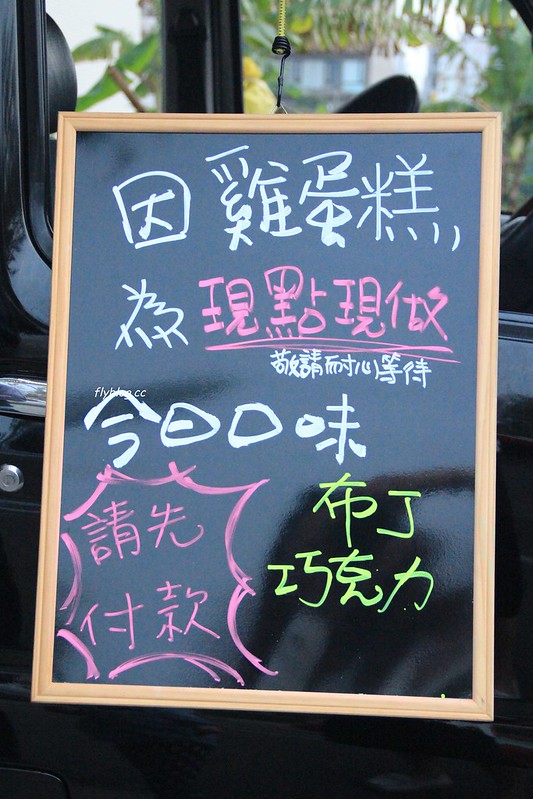 因雞蛋糕,,
為現點現做
敬請耐心等待
flyblog.cc
今日口味
請先
付款
布丁
巧克力